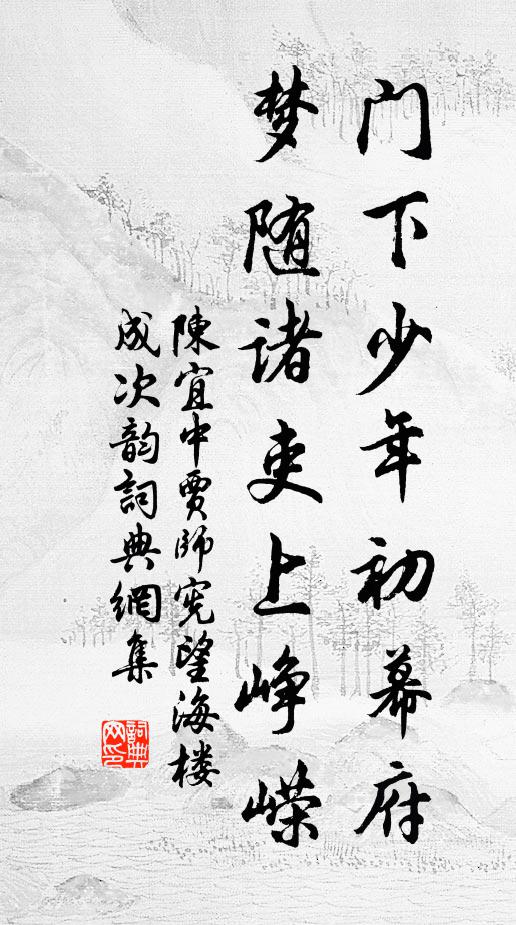 门下少年初幕府
梦随诸吏上峥嵘
陳宜中贾師宪望海楼
成次韵詞典網集
詞典
网印